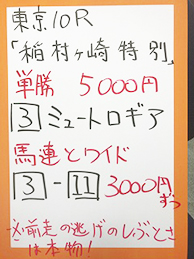 東京10R
「稲村ヶ崎特別」
単勝 5000円
3 ミュートロギア
馬連とワイド
3-11 3000円ずつ
※前走の逃げのしぶとさ
は本物!